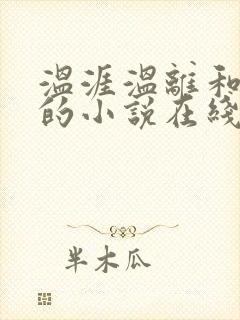 温涯温離和
的小说在綫
半木瓜